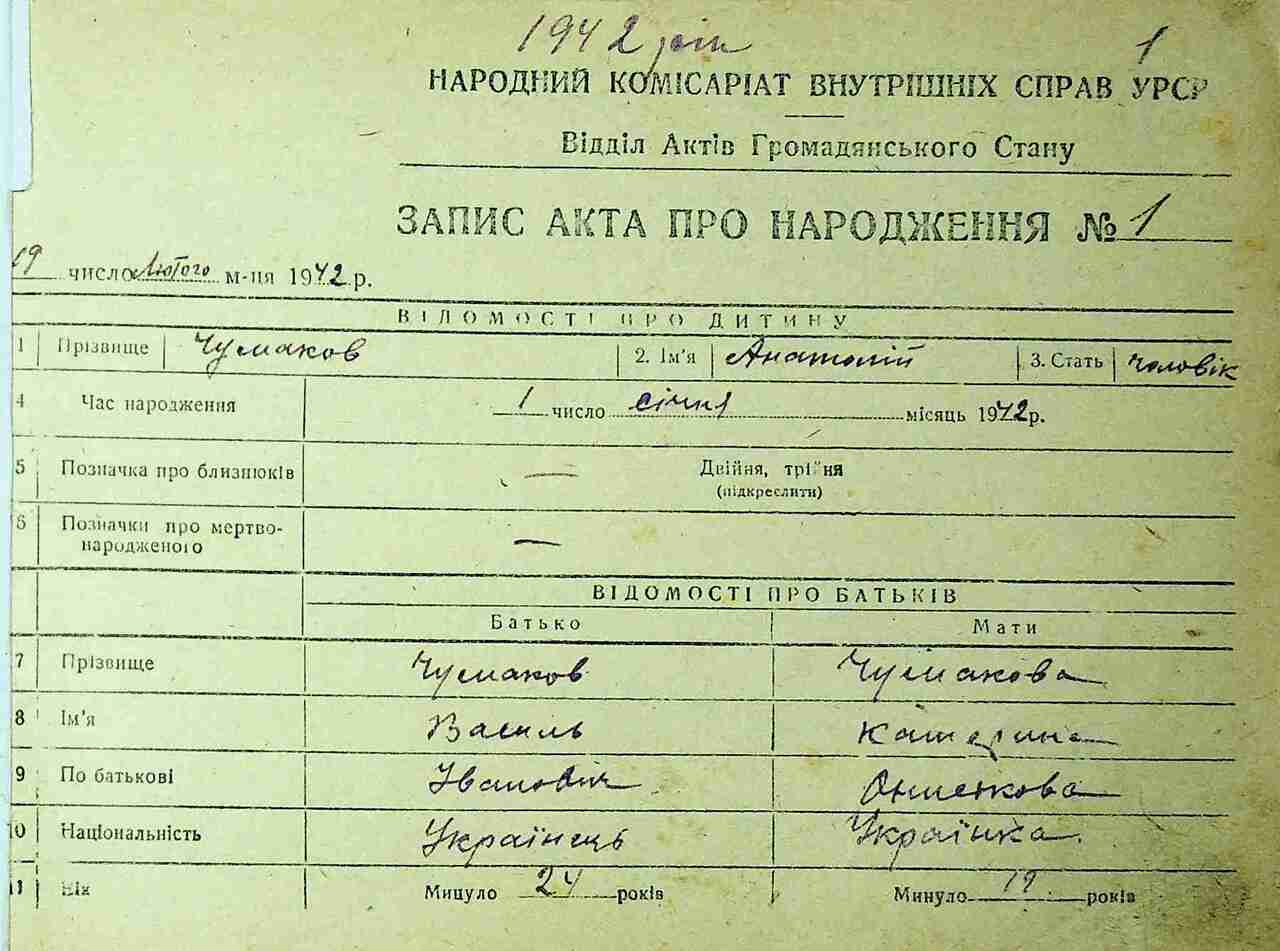 1942 рік 1
НАРОДНИЙ КОМІСАРІАТ ВНУТРІШНІХ СПРАВ УРСР
Відділ Актів Громадянського Стану
ЗАПИС АКТА ПРО НАРОДЖЕННЯ № 1
19 число Лютого м-ця 1942 р.
ВІДОМОСТІ ПРО ДИТИНУ
1 Прізвище Чумаков 2. Ім'я Анатолій 3. Стать чоловік
4 Час народження 1 число січня місяць 1942 р.
5 Позначка про близнюків — Двійня, трійня
(підкреслити)
6 Позначки про мертво-
народженого —
ВІДОМОСТІ ПРО БАТЬКІВ
Батько Мати
7 Прізвище Чумаков Чумакова
8 Ім'я Василь Катерина
9 По батькові Іванович
10 Національність Українець Українка
11 Вік Минуло 24 років Минуло 19 років